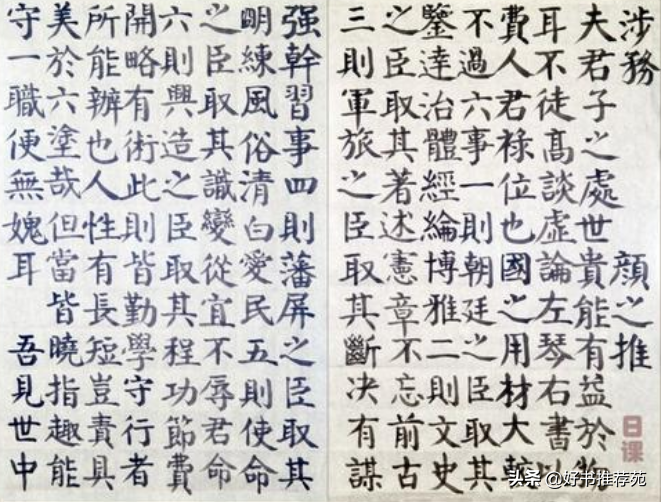 涉務 顏之推
夫君子之處世貴能有益於物
耳不徒高談虛論左琴右書
費人君祿位也國之用材大較
不過六事一則朝廷之臣取其
鑒達治體經綸博雅二則文史
之臣取其著述憲章不忘前古
三則軍旅之臣取其斷决有謀
強幹習事四則藩屏之臣取其
明練風俗清白愛民五則使命
之臣取其識變從宜不辱君命
六則興造之臣取其程功節費
開略有術此則皆勤學守行者
所能辦也人性有長短豈責具
美於六塗哉但當皆曉指趣能
守一職便無媿耳 吾見世中
日课
头条 @好书推荐苑